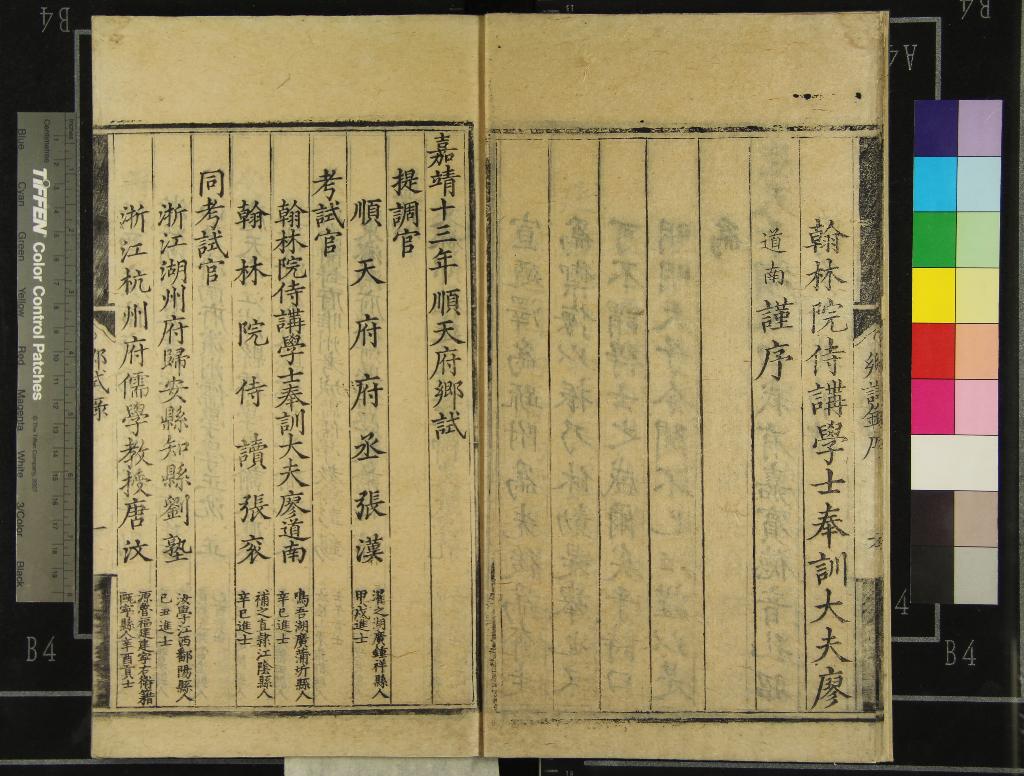 翰林院侍講學士奉訓大夫廖
道南謹序
嘉靖十三年順天府鄉試
提調官
順天府府丞張漢
濯之湖廣鍾祥縣人
甲戌進士
考試官
翰林院侍講學士奉訓大夫廖道南
鳴吾湖廣蒲圻縣人
辛巳進士
翰林院侍讀張袞
補之直隸江陰縣人
辛巳進士
同考試官
浙江湖州府歸安縣知縣劉塾
汝學江西鄱陽縣人
己丑進士
浙江杭州府儒學教授唐汶
源魯福建建寧右衛籍
甌寧縣人辛酉貢士
鄉試錄
一
B4
B4
B4
A4
B4
4
TIFFEN Color Control Patches
© The Tiffen Company, 2007
Centimetres
Inches
Blue
Cyan
Green
Yellow
Red
Magenta
White
3/Color
Black